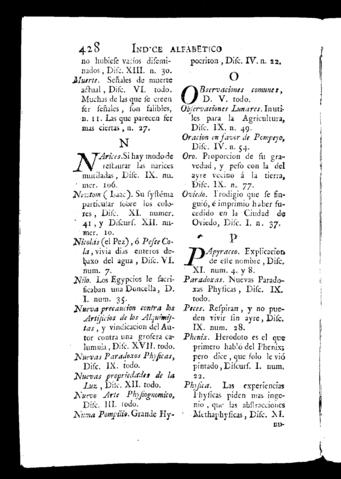 428 INDICE ALFABETICO
no hubiese varios disemi-
nados, Disc. XIII. n. 30.
Muerte. Señales de muerte
actual, Disc. VI. todo.
Muchas de las que se creen
ser señales, son falibles,
n. 11. Las que parecen ser
mas ciertas, n. 27.
N
NArices. Si hay modo de
restaurar las narices
mutiladas, Disc. IX. nu-
mer. 106.
Newton (Isac). Su systéma
particular sobre los colo-
res, Disc. XI. numer.
41, y Discurs. XII. nu-
mer. 10.
Nicolás (el Pez), ó Pesce Co-
la, vivia dias enteros de-
baxo del agua, Disc. VI.
num. 7.
Nilo. Los Egypcios le sacri-
ficaban una Doncella, D.
I. num. 35.
Nueva precaucion contra los
Artificios de los Alquimis-
tas, y vindicacion del Au-
tor contra una grosera ca-
lumnia, Disc. XVII. todo.
Nuevas Paradoxas Physicas,
Disc. IX. todo.
Nuevas propriedades de la
Luz, Disc. XII. todo.
Nuevo Arte Physiognomico,
Disc. III. todo.
Numa Pompilio. Grande Hy-
pocriton, Disc. IV. n. 22.
O
OBservaciones comunes,
D. V. todo.
Observaciones Lunares. Inuti-
les para la Agricultura,
Disc. IX. n. 49.
Oracion en favor de Pompeyo,
Disc. IV. n. 54.
Oro. Proporcion de su gra-
vedad, y peso con el del
ayre vecino á la tierra,
Disc. IX. n. 77.
Oviedo. Prodigio que se fin-
guió, é imprimió haber su-
cedido en la Ciudad de
Oviedo, Disc. I. n. 37.
P
PApyraceo. Explicacion
de este nombre, Disc.
XI. num. 4. y 8.
Paradoxas. Nuevas Parado-
xas Physicas, Disc. IX.
todo.
Peces. Respiran, y no pue-
den vivir sin ayre, Disc.
IX. num. 28.
Phenix. Herodoto es el que
primero habló del Phenix;
pero dice, que solo le vió
pintado, Discurs. I. num.
22.
Physica. Las experiencias
Physicas piden mas inge-
nio, que las abstracciones
Methaphysicas, Disc. XI.